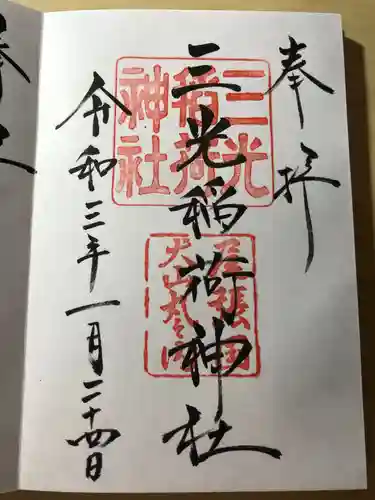 奉拝
三光稲荷神社
三光
稲荷
神社
尾張国
犬山
令和三年一月二十四日